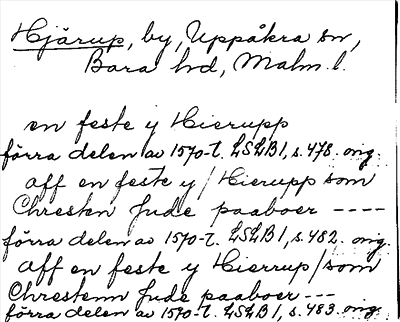 Hjärup, by, Uppåkra sn,
Bara hd, Malm. l.
en feste y Hierupp
förra delen av 1570-t. LSLB1, s. 478. orig.
aff en feste y / Hierupp som
Chresten Jude paaboer ----
förra delen av 1570-t. LSLB1, s. 482. orig.
aff en feste y Hierrup / som
Chrestenn Jude paaboer ---
förra delen av 1570-t. LSLB1, s. 483. orig.